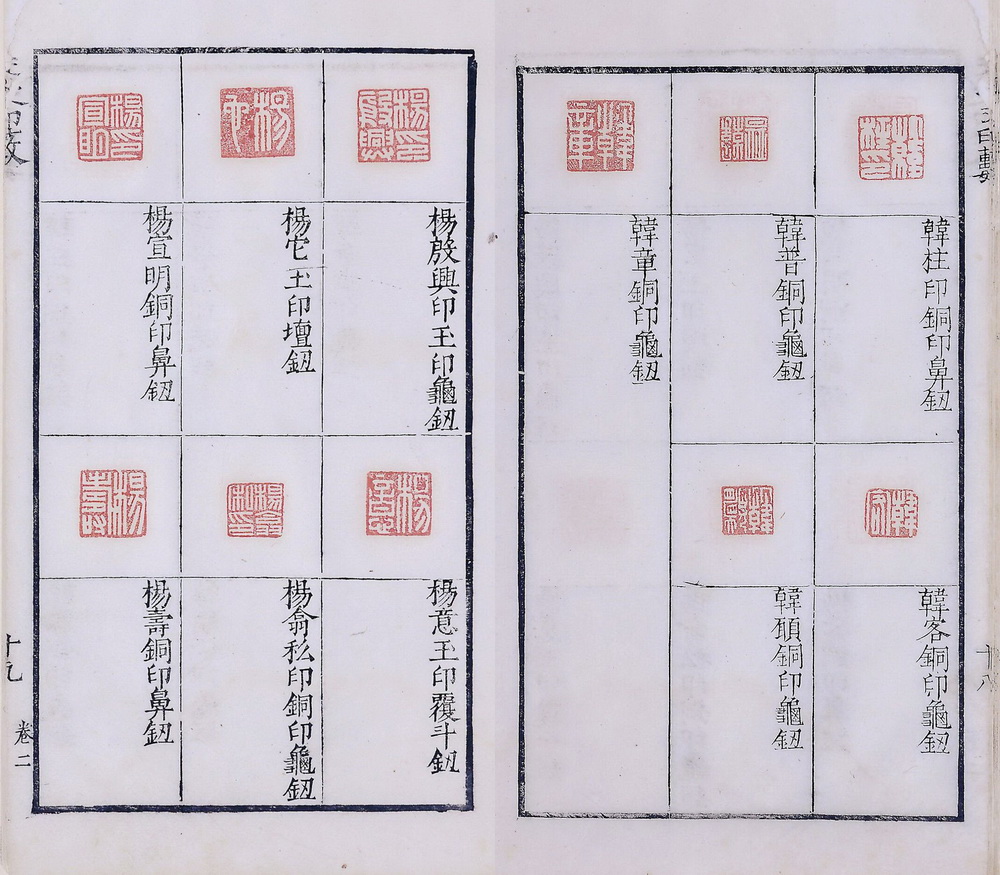 韓柱印銅印鼻鈕
韓普銅印龜鈕
韓童銅印龜鈕
韓客銅印龜鈕
韓頤銅印龜鈕
十八
楊殷興印玉印龜鈕
楊它玉印壇鈕
楊宣明銅印鼻鈕
楊意玉印覆斗鈕
楊翕私印銅印龜鈕
楊壽銅印鼻鈕
十九
卷二